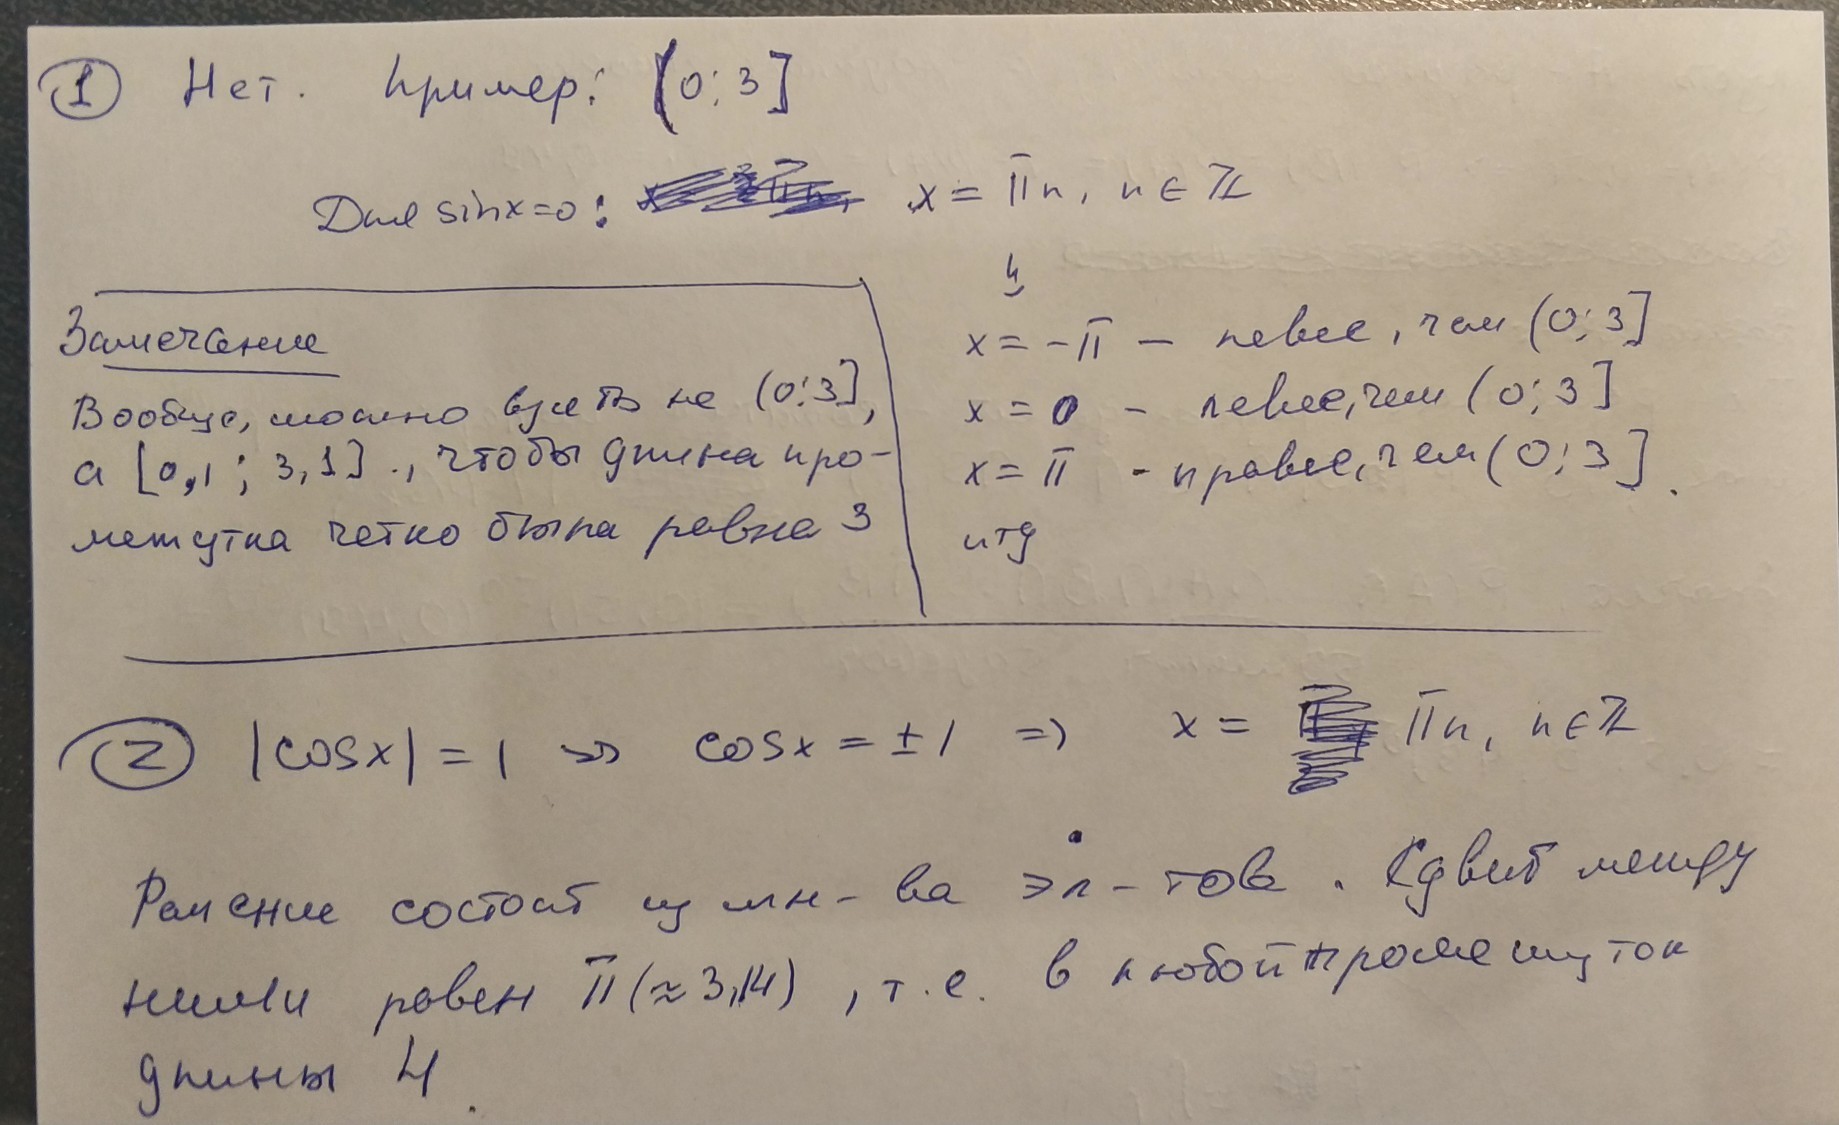 ① Нет. Пример: (0; 3]
Для sinx=0: x = πn, n ∈ ℤ
↓
x = -π - левее, чем (0; 3]
x = 0 - левее, чем (0; 3]
x = π - правее, чем (0; 3].
итд
Замечание
Вообще, можно взять не (0; 3],
а [0,1; 3,1], чтобы длина про-
межутка четко была равна 3
② |cosx| = 1 => cosx = ±1 => x = πn, n∈ℤ
Решение состоит из мн-ва эл-тов. Сдвиг между
ними равен π(≈3,14), т.е. в любой промежуток
длины 4.